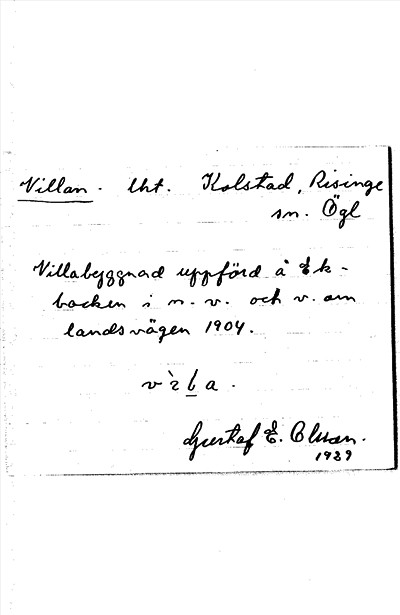 Villan. lht. Kolstad, Risinge
sn. Ögl
Villabyggnad uppförd å Ek-
backen i n. v. och v. om
landsvägen 1904.
Gustaf E. Olsson.
1939